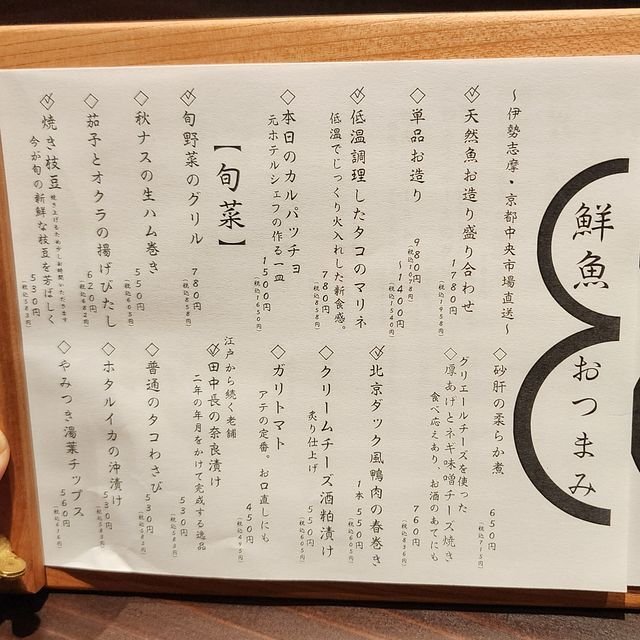 鮮魚
おつまみ
～伊勢志摩・京都中央市場直送～
天然魚お造り盛り合わせ
1780円
(税込1958円)
単品お造り
980円
(税込1078円)
～1400円
(税込1540円)
低温調理したタコのマリネ
低温でじっくり火入れした新食感。
780円
(税込858円)
本日のカルパッチョ
元ホテルシェフの作る一皿
1500円
(税込1650円)
【旬菜】
旬野菜のグリル
780円
(税込858円)
秋ナスの生ハム巻き
550円
(税込605円)
茄子とオクラの揚げびたし
620円
(税込682円)
焼き枝豆
焼き上げるため少しお時間いただきます
今が旬の新鮮な枝豆を芳ばしく
530円
(税込583円)
砂肝の柔らか煮
650円
(税込715円)
グリエールチーズを使った
厚あげとネギ味噌チーズ焼き
食べ応えあり、お酒のあてにも
760円
(税込836円)
北京ダック風鴨肉の春巻き
1本 550円
(税込605円)
クリームチーズ酒粕漬け
炙り仕上げ
550円
(税込605円)
ガリトマト
アテの定番。お口直しにも
450円
(税込495円)
江戸から続く老舗
田中長の奈良漬け
二年の年月をかけて完成する逸品
530円
(税込583円)
普通のタコわさび
530円
(税込583円)
ホタルイカの沖漬け
530円
(税込583円)
やみつき湯葉チップス
560円
(税込616円)